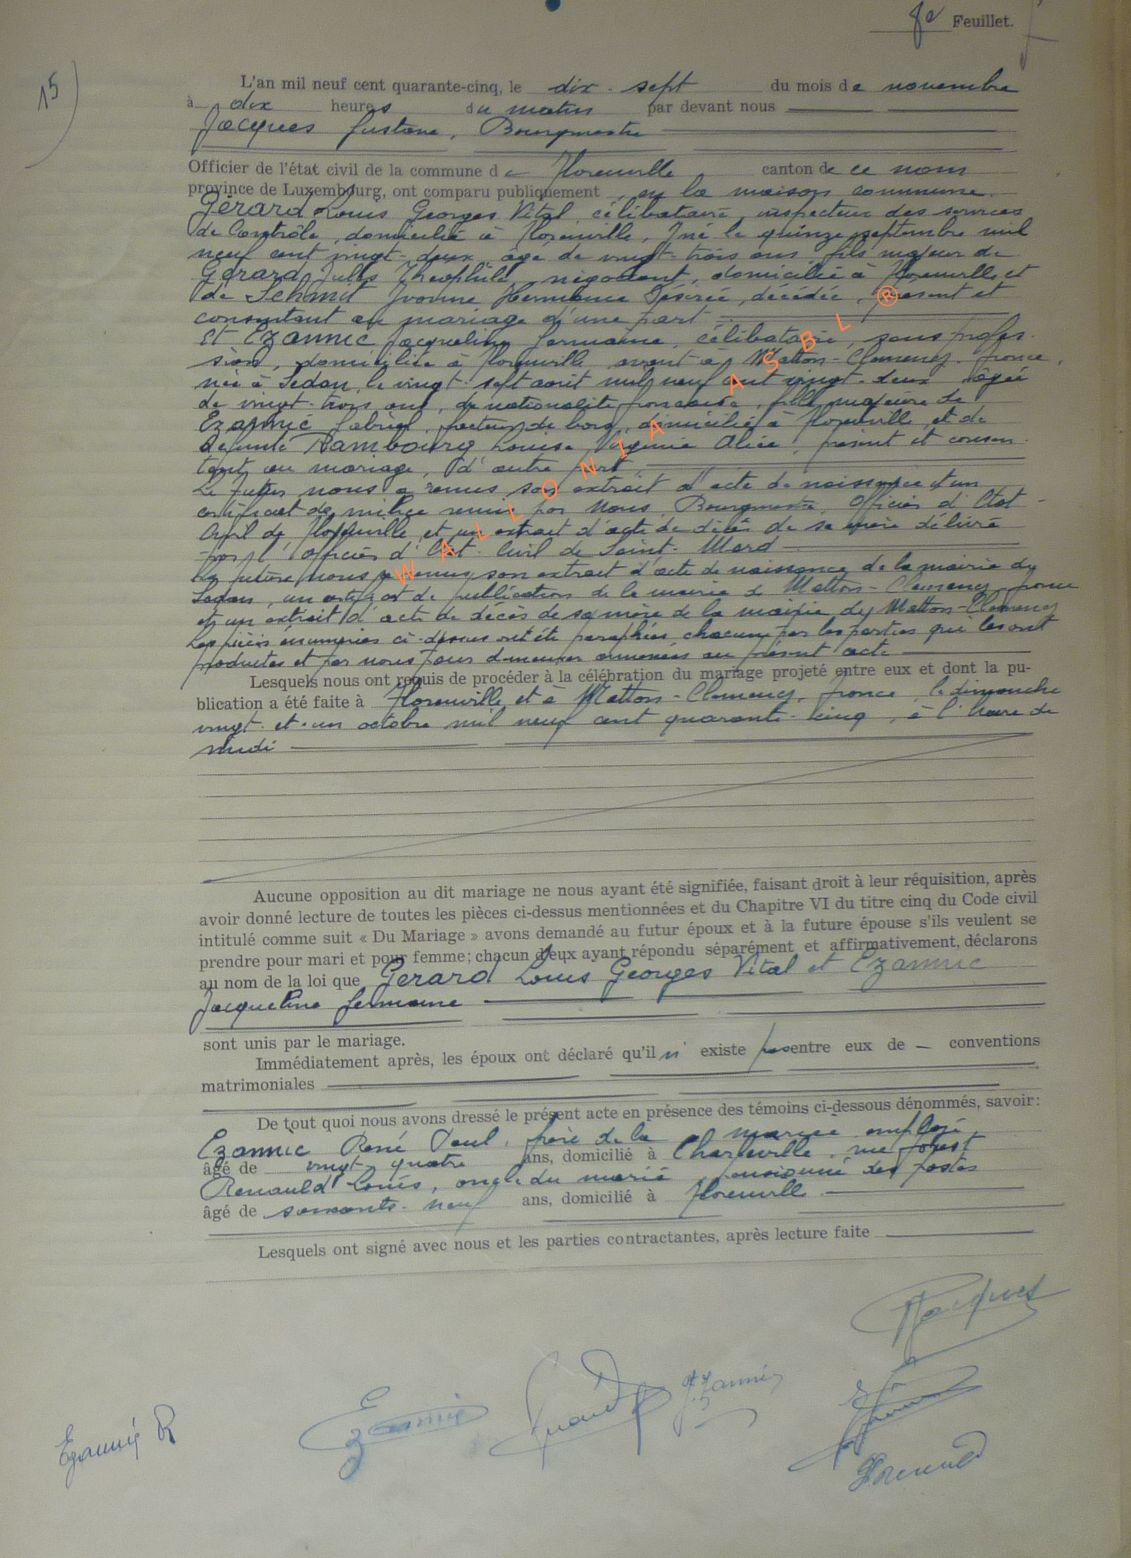 8e Feuillet.
15)
L'an mil neuf cent quarante-cinq, le dix-sept du mois de novembre
à dix heures du matin par devant nous
Jacques Gustave, Bourgmestre
Officier de l'état civil de la commune de Florenville canton de ce nom
province de Luxembourg, ont comparu publiquement, en la maison commune.
Gérard Louis Georges Vital, célibataire, inspecteur des services
de Contrôle, domicilié à Florenville, né le quinze septembre mil
neuf cent vingt-deux, âgé de vingt-trois ans, fils majeur de
Gérard Jules Théophile, négociant, domicilié à Florenville et
de Schmit Yvonne Hermance Désirée, décédée, présent et
consentant au mariage d'une part
Et Ezannic Jacqueline Germaine, célibataire, sans profes-
sion, domiciliée à Florenville avant à Matton-Clemency, france,
née à Sedan, le vingt-sept août mil neuf cent vingt-deux âgée
de vingt-trois ans, de nationalité française, fille majeure de
Ezannic Gabriel, facteur de bois, domicilié à Florenville, et de
défunte Rambourg Louise Virginie Alice, présent et consen-
tant au mariage, d'autre part.
Le futur nous a remis son extrait d'acte de naissance et un
certificat de milice remis par Nous, Bourgmestre, Officier d'Etat-
Civil de Florenville, et un extrait d'acte de décès de sa mère délivré
par l'Officier d'Etat-Civil de Saint-Mard
La future nous a remis son extrait d'acte de naissance de la mairie de
Sedan, un certificat de publication de la mairie de Matton-Clemency france
et un extrait d'acte de décès de sa mère de la mairie de Matton-Clemency
Les pièces énumérées ci-dessus ont été paraphées chacune par les parties qui les ont
produites et par nous pour demeurer annexées au présent acte
Lesquels nous ont requis de procéder à la célébration du mariage projeté entre eux et dont la pu-
blication a été faite à Florenville et à Matton-Clemency, france, le dimanche
vingt-et-un octobre mil neuf cent quarante-cinq, à l'heure de
midi
Aucune opposition au dit mariage ne nous ayant été signifiée, faisant droit à leur réquisition, après
avoir donné lecture de toutes les pièces ci-dessus mentionnées et du Chapitre VI du titre cinq du Code civil
intitulé comme suit « Du Mariage » avons demandé au futur époux et à la future épouse s'ils veulent se
prendre pour mari et pour femme; chacun d'eux ayant répondu séparément et affirmativement, déclarons
au nom de la loi que Gérard Louis Georges Vital et Ezannic
Jacqueline Germaine
sont unis par le mariage.
Immédiatement après, les époux ont déclaré qu'il n'existe pas entre eux de conventions
matrimoniales
De tout quoi nous avons dressé le présent acte en présence des témoins ci-dessous dénommés, savoir:
Ezannic René Paul, frère de la mariée employé,
âgé de vingt-quatre ans, domicilié à Charleville, rue forest
Renauld Louis, oncle du marié, pensionné des postes
âgé de soixante-neuf ans, domicilié à Florenville
Lesquels ont signé avec nous et les parties contractantes, après lecture faite
Jacques
Ezannic R
Ezannic
Gérard
J. Ezannic
Renauld
WALLONIA ASBL ®